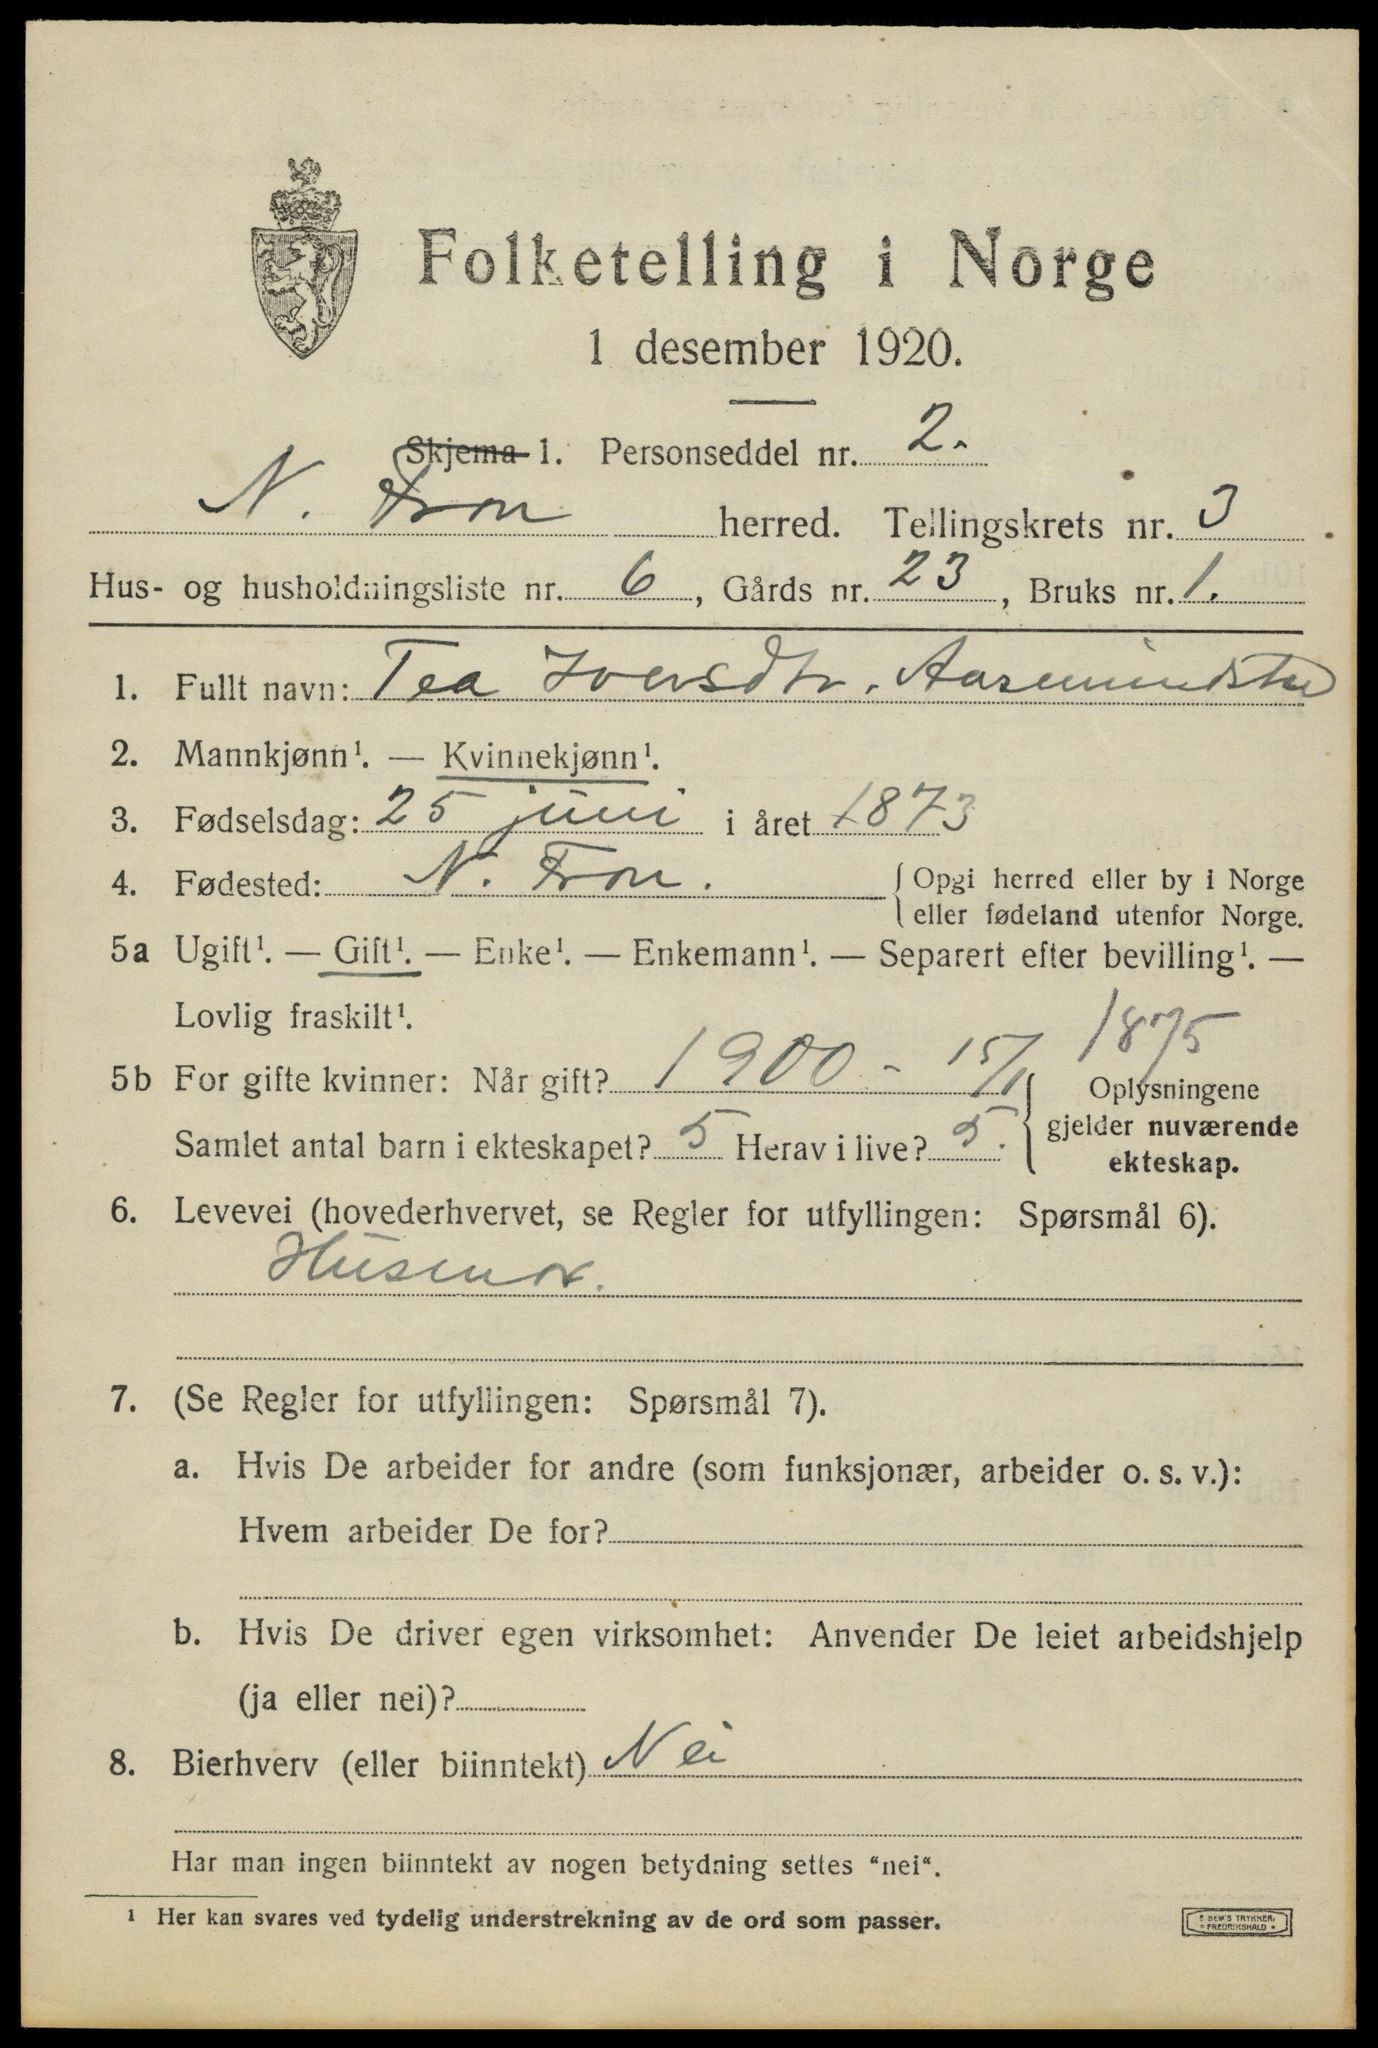 Folketelling i Norge
1 desember 1920.
Skjema 1. Personseddel nr. 2.
N. Fron herred. Tellingskrets nr. 3
Hus- og husholdningsliste nr. 6, Gårds nr. 23, Bruks nr. 1.
1. Fullt navn: Tea Iversdtr.
2. Mannkjønn¹. — Kvinnekjønn¹.
3. Fødselsdag: 25 juni i året 1873
4. Fødested: N. Fron. { Opgi herred eller by i Norge
eller fødeland utenfor Norge.
5a Ugift¹. — Gift¹. — Enke¹. — Enkemann¹. — Separert efter bevilling¹. —
Lovlig fraskilt¹.
1875
5b For gifte kvinner: Når gift? 1900 - 15/1
Samlet antal barn i ekteskapet? 5 Herav i live? 5.
{ Oplysningene
gjelder nuværende
ekteskap.
6. Levevei (hovederhvervet, se Regler for utfyllingen: Spørsmål 6).
Husmor.
7. (Se Regler for utfyllingen: Spørsmål 7).
a. Hvis De arbeider for andre (som funksjonær, arbeider o. s. v.):
Hvem arbeider De for?
b. Hvis De driver egen virksomhet: Anvender De leiet arbeidshjelp
(ja eller nei)?
8. Bierhverv (eller biinntekt) Nei
Har man ingen biinntekt av nogen betydning settes "nei".
¹ Her kan svares ved tydelig understrekning av de ord som passer.
E SEM'S TRYKKERI
FREDRIKSHALD